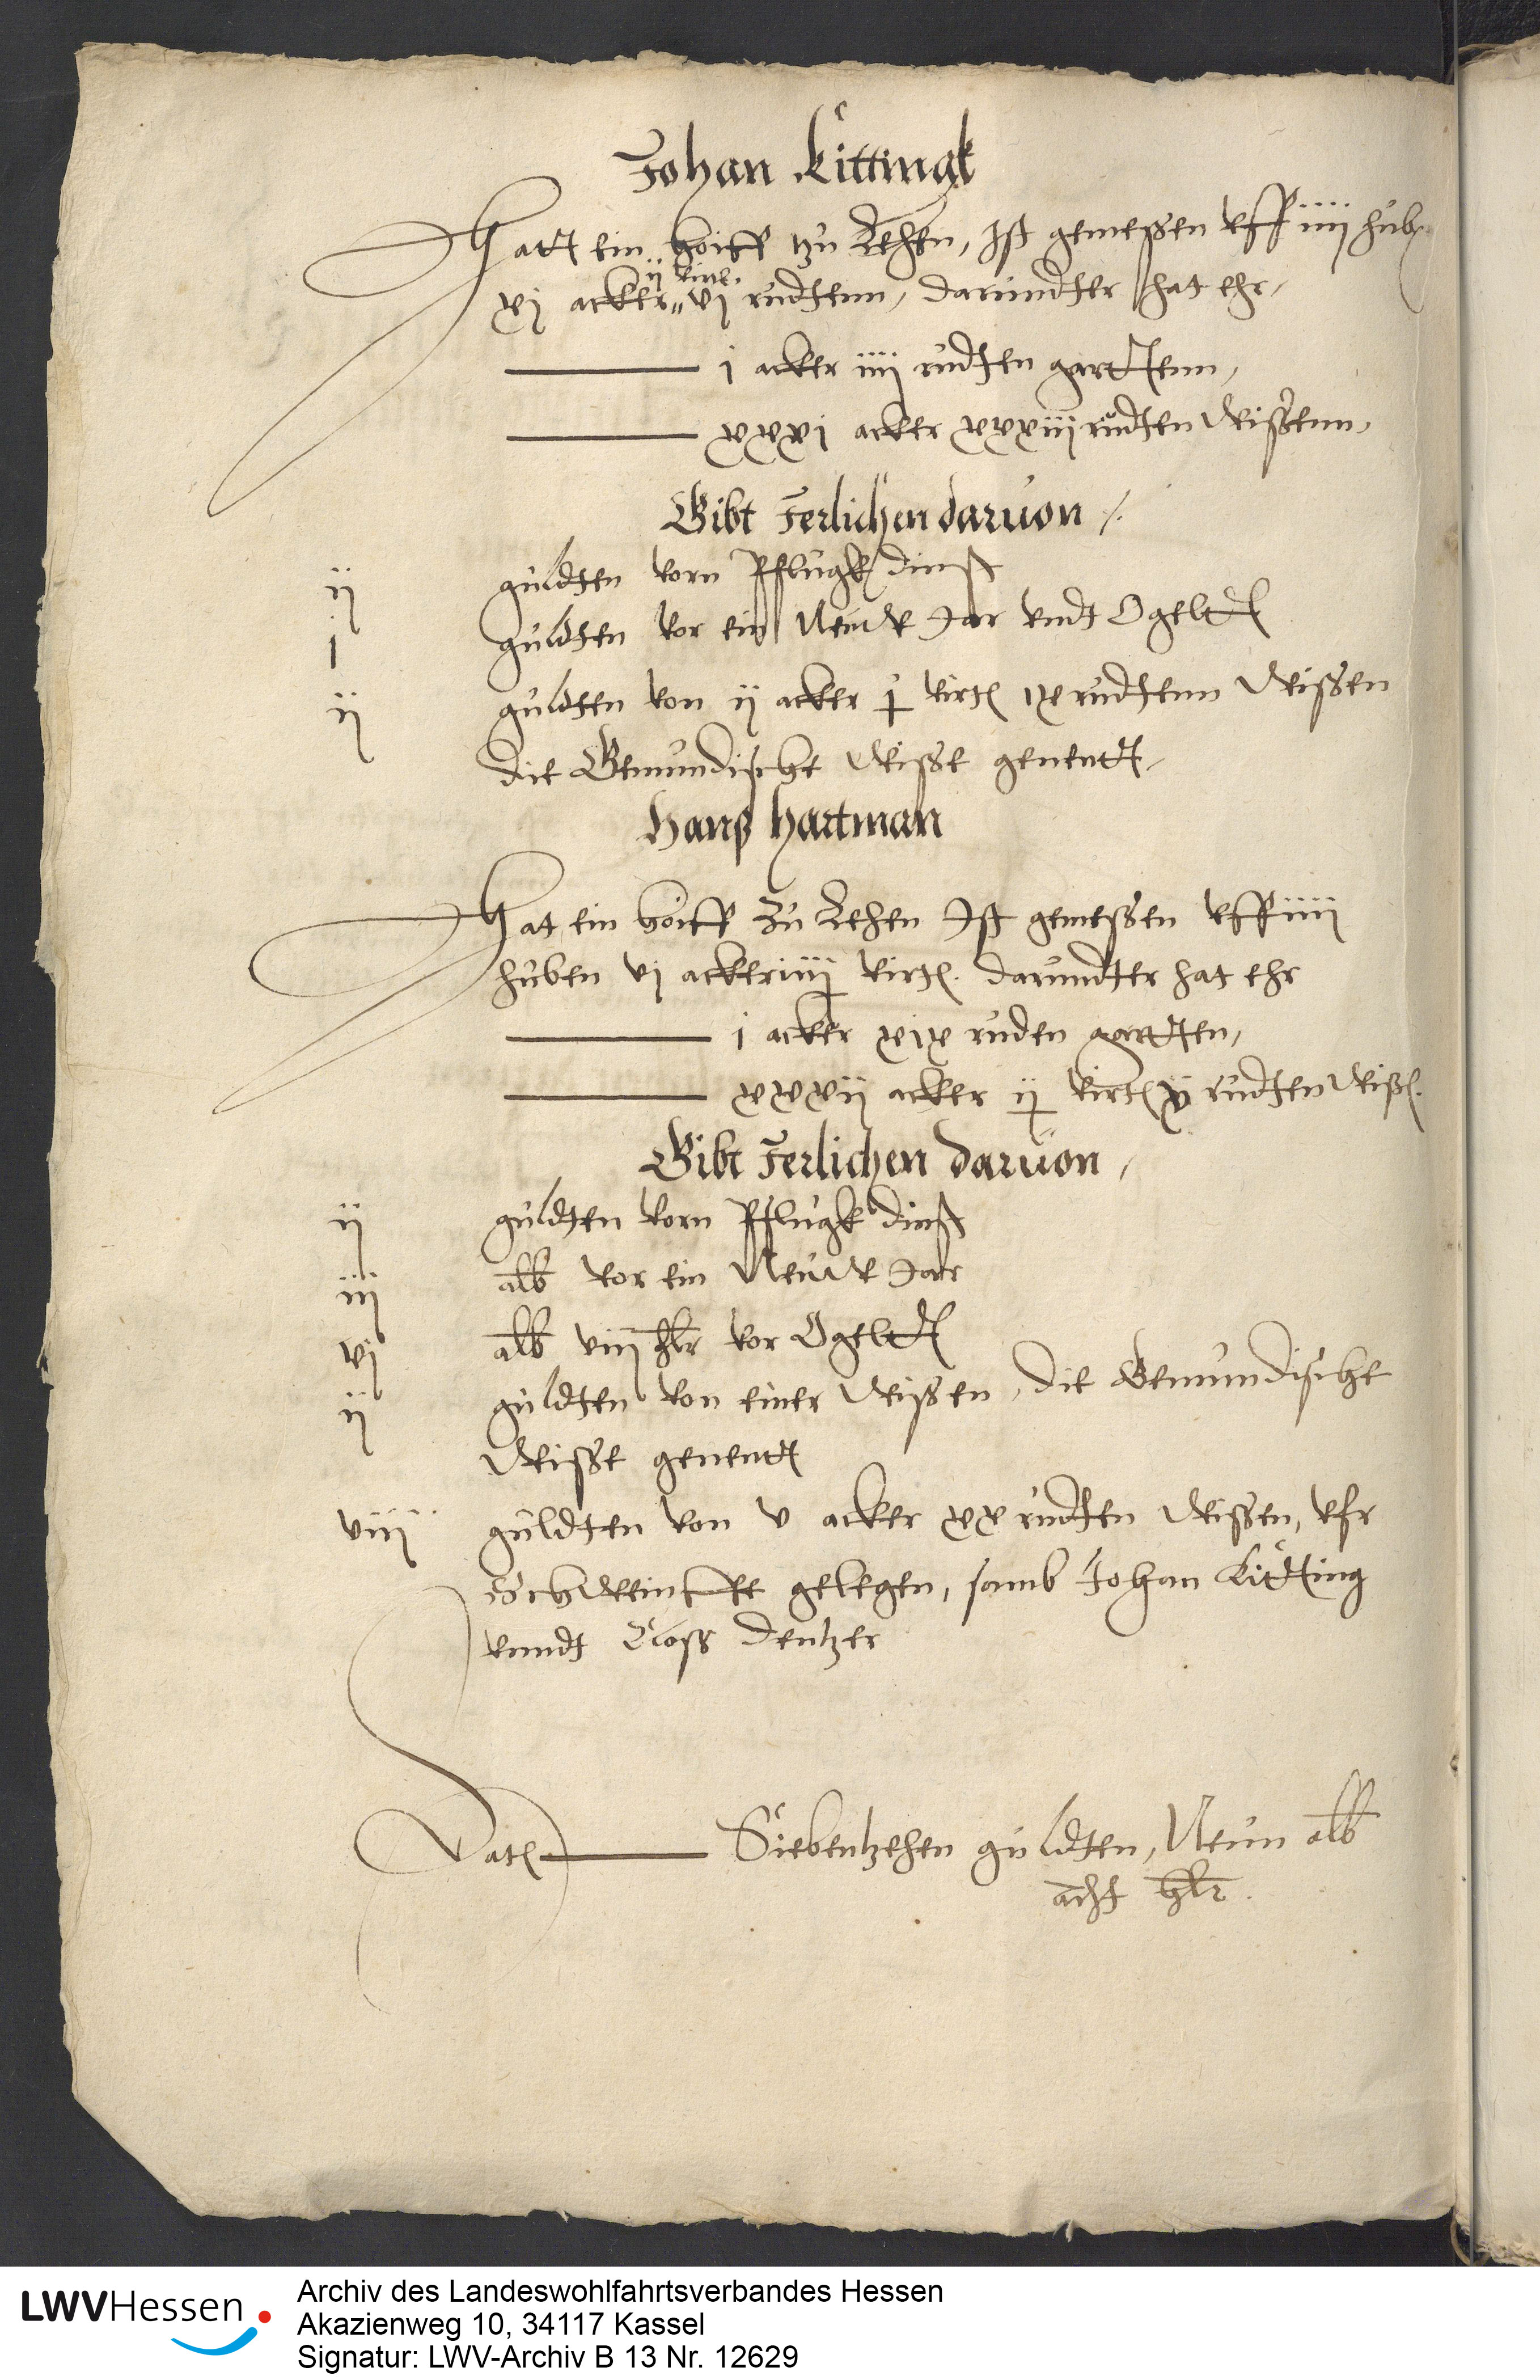 Johan Kittingk
Hatt ein hoiff tzu Lehen, Ist gemessen uff iiij hub
xj acker ij virt. vj rudtenn, darundter hat ehr,
j acker iiij rudten garttenn,
xxxj acker xxxiij rudten Wissenn,
Gibt Jerlichen darvon
ij guldten vorn Pflugk dinst
j guldten vor ein Neuw Jar undt Ogeltt
ij guldten von ij acker j virt ix rudtenn Wissen
die Gemundische Wisse genentt,
Hans Hartman
Hat ein hoiff zu Lehen Ist gemessen uff iiij
huben vj acker iiij virt. darundter hat ehr
j acker xix ruden gartten,
xxxij acker ij virt ij rudten Wiss.
Gibt Jerlichen darvon,
ij guldten vorn Pflugk dinst
iij alb vor ein Neuw Jar
vj alb viij hlr vor Ogeltt
ij guldten von einer Wissen, die Gemundische
Wisse genentt
viij guldten von v acker xx rudten Wissen, ufr
gelegen, samb Johan Kitting
unndt Closs Dentzer
Lat. Siebentzehen guldten, Neun alb
acht hlr.
LWVHessen
Archiv des Landeswohlfahrtsverbandes Hessen
Akazienweg 10, 34117 Kassel
Signatur: LWV-Archiv B 13 Nr. 12629